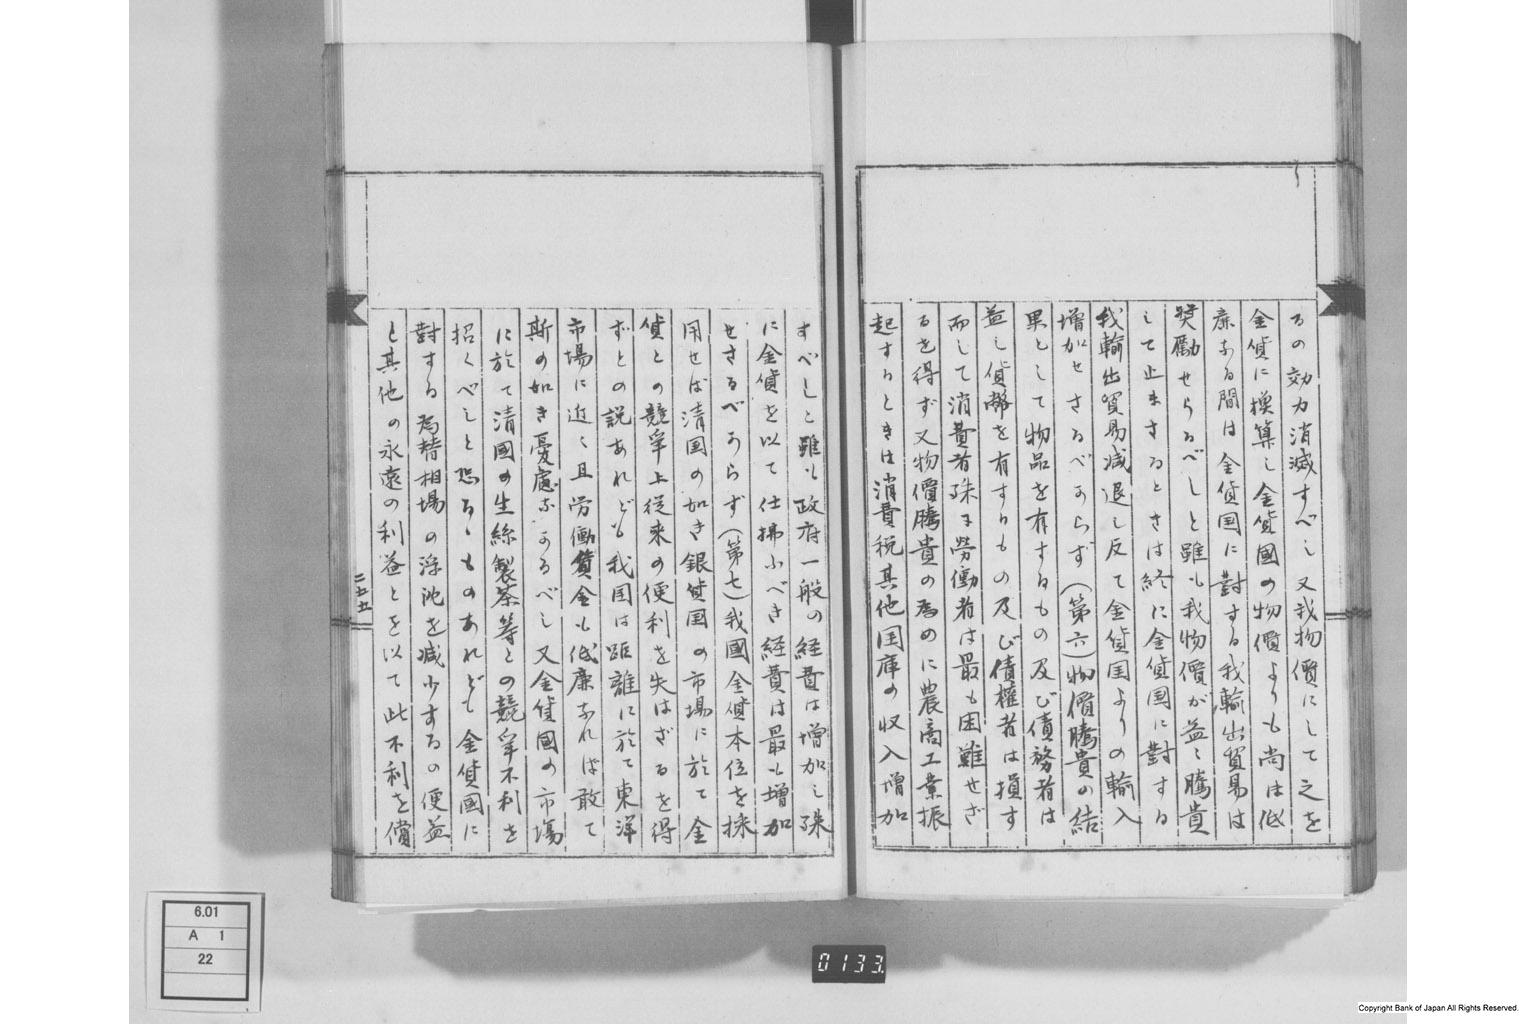 るの効力消滅すべし又我物價にして之を
金貨に換算し金貨國の物價よりも尚ほ低
廉なる間は金貨国に對する我輸出貿易は
奨勵せらるべしと雖も我物價が益々騰貴
して止まさるときは終に金貨国に對する
我輸出貿易減退し反て金貨国よりの輸入
増加せさるべからず(第六)物價騰貴の結
果として物品を有するもの及び債務者は
益し貨幣を有するもの及び債權者は損す
而して消費者殊に勞働者は最も困難せざ
るを得ず又物價騰貴の為めに農商工業振
起するときは消費税其他国庫の収入増加
すべしと雖も政府一般の経費は増加し殊
に金貨を以て仕拂ふべき経費は最も増加
せさるべからず(第七)我國金貨本位を採
用せば清国の如き銀貨国の市場に於て金
貨との競争上従来の便利を失はざるを得
ずとの説あれども我国は距離に於て東洋
市場に近く且労働賃金も低廉なれば敢て
斯の如き憂慮なかるべし又金貨國の市場
に於て清國の生絲製茶等との競争不利を
招くべしと恐るゝものあれども金貨國に
對する為替相場の浮沈を減少するの便益
と其他の永遠の利益とを以て此不利を償
二五五
6.01
A 1
22
0133.
Copyright Bank of Japan All Rights Reserved.